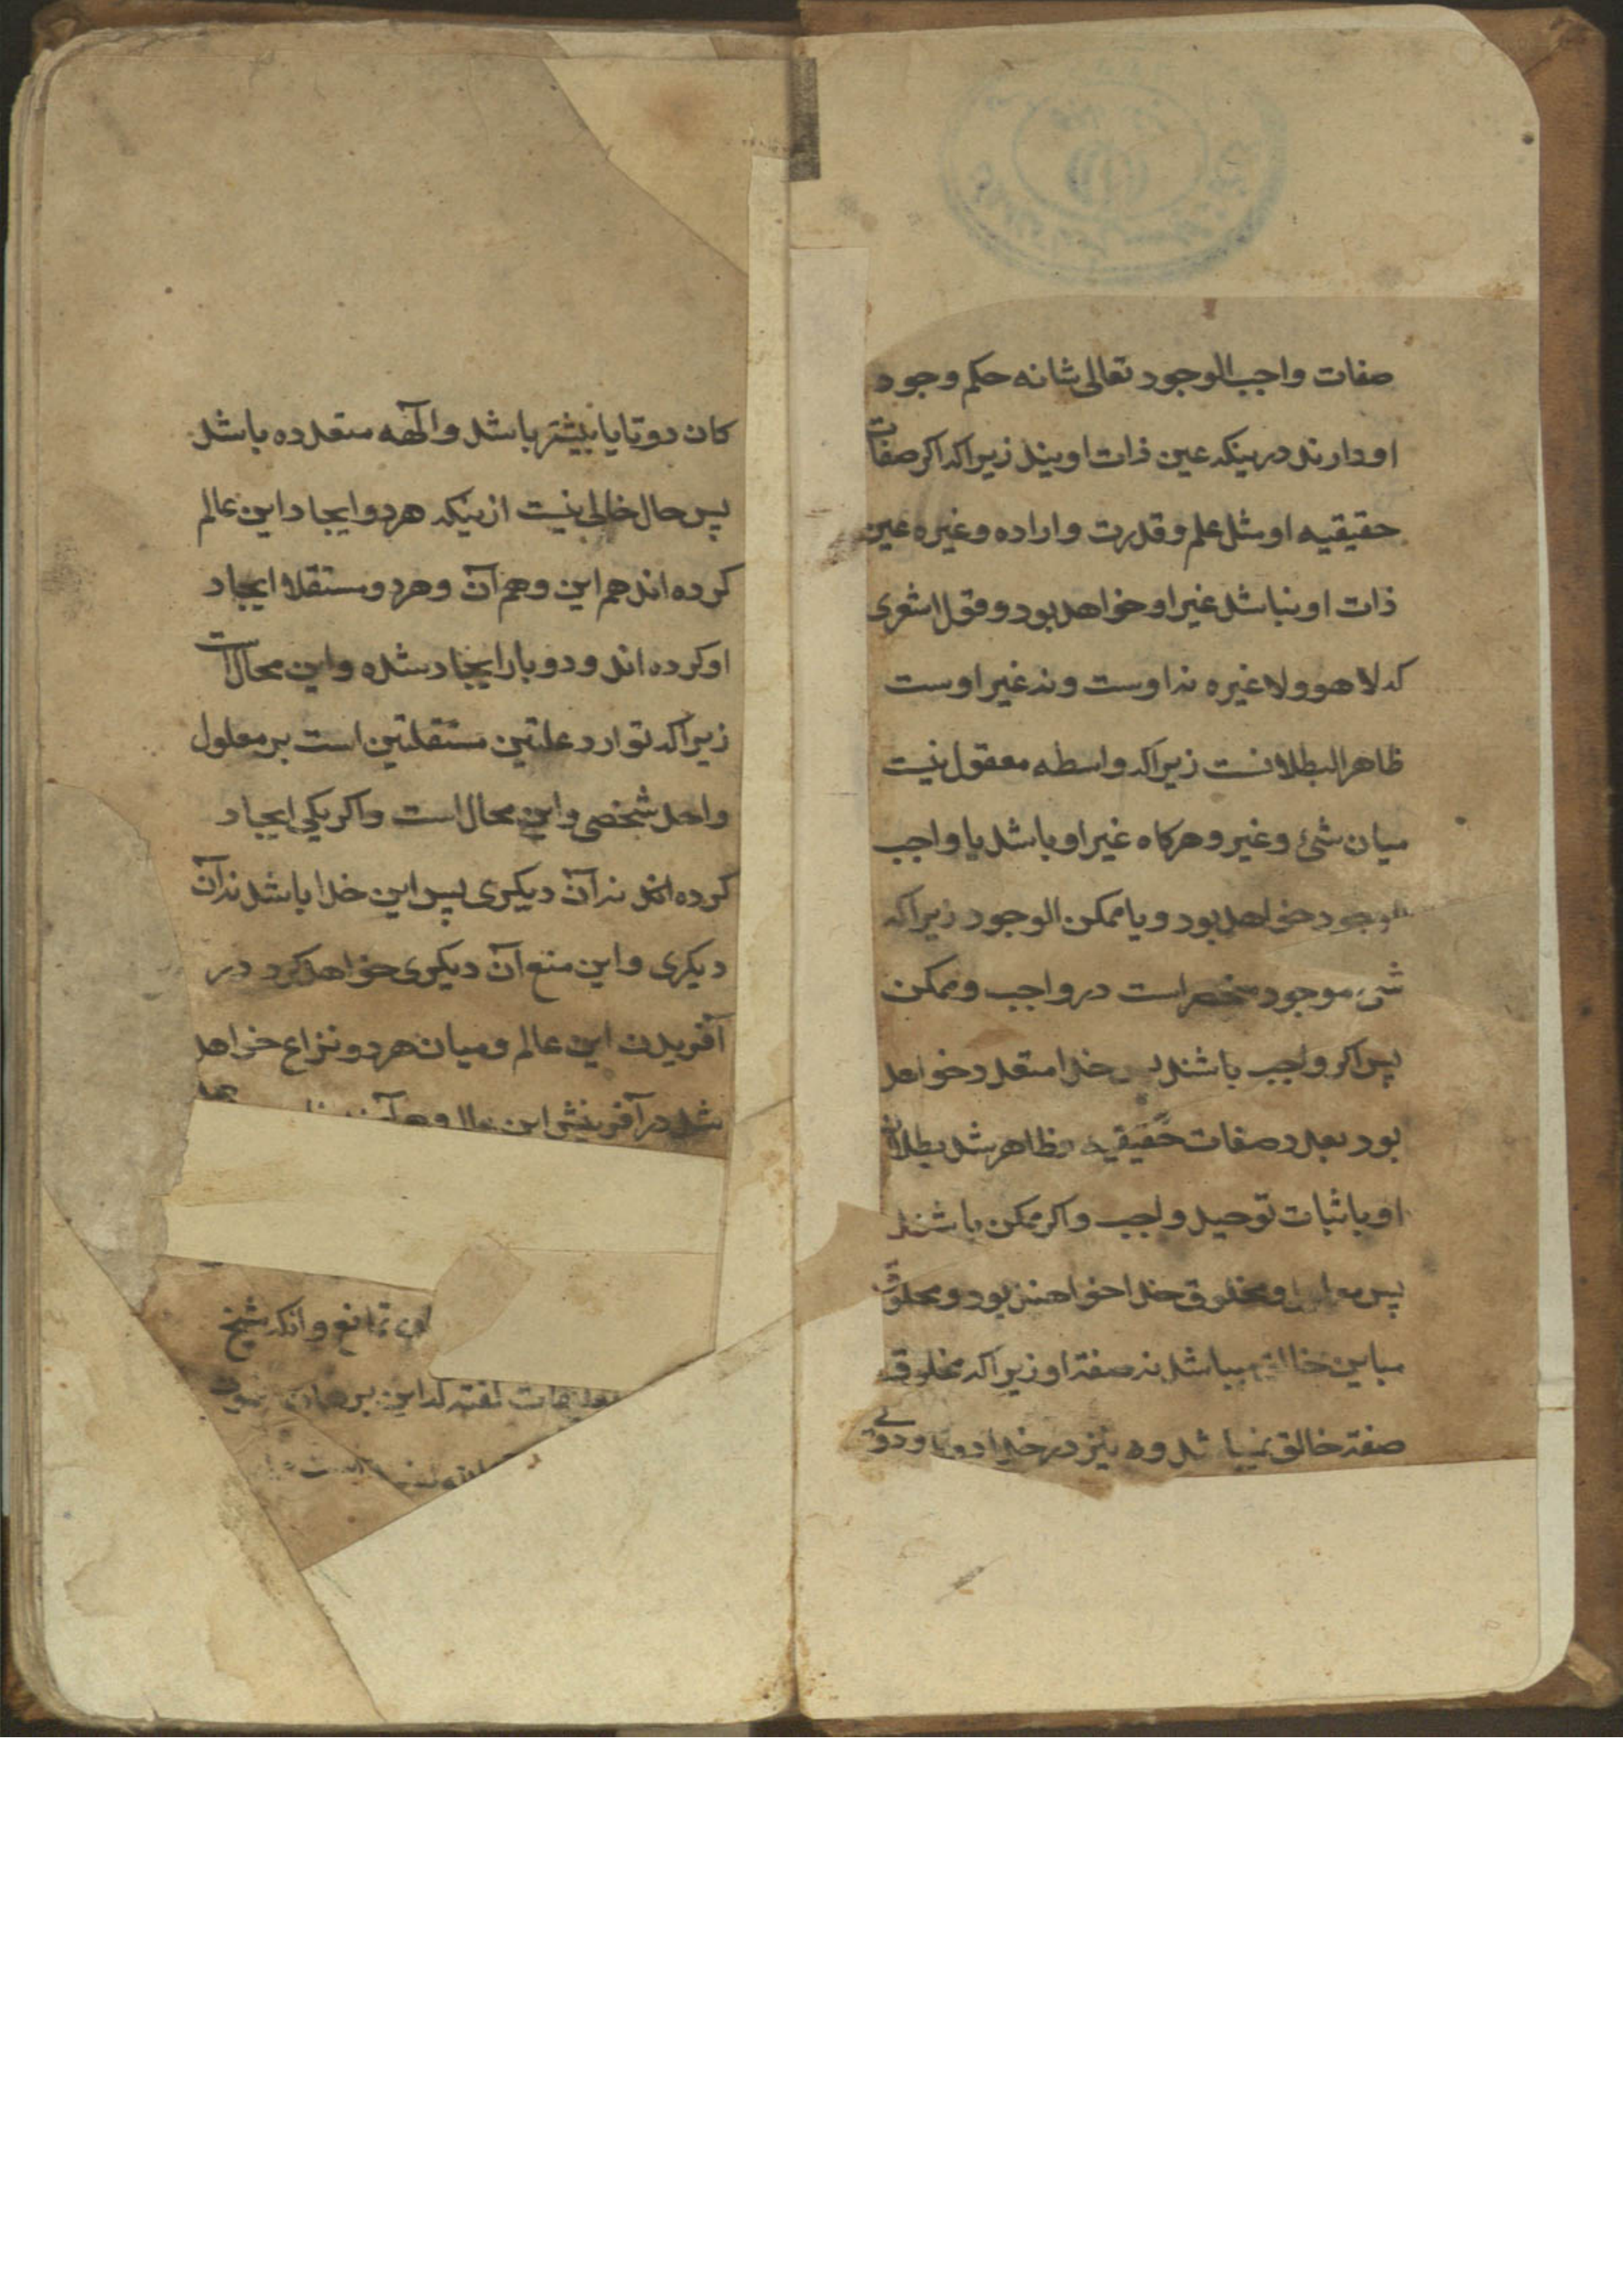 صفات واجب الوجود تعالی شانه حکم وجود
او دارند درینکه عین ذات اویند زیراکه اکر صفات
حقیقیه او مثل علم و قدرت و اراده و غیره عین
ذات او نباشد غیر او خواهد بود و قول اشعری
که لا هو ولا غیره نه اوست و نه غیر اوست
ظاهر البطلانست زیراکه واسطه معقول نیست
میان شئ و غیر و هرکاه غیر او باشد یا واجب
الوجود خواهد بود و یا ممکن الوجود زیراکه
شئ موجود منحصر است در واجب و ممکن
پس اکر واجب باشند پس خدا متعدد خواهد
بود بعدد صفات حقیقیه و ظاهر شد بطلان
او باثبات توحید واجب و اکر ممکن باشند
پس و مخلوق خدا خواهند بود و مخلوق
مباین خالق میباشد نه صفة او زیراکه مخلوق
صفة خالق نمیباشد و نیز در خدا
کان دو تا یا بیشتر باشد و الٓهه متعدده باشد
پس حال خالی نیست ازینکه هر دو ایجاد این عالم
کرده اند هم این و هم آن و هر دو مستقلا ایجاد
او کرده اند و دو بار ایجاد شده و این محال است
زیراکه توارد علتین مستقلتین است بر معلول
واحد شخصی و این محال است و اکر یکی ایجاد
کرده اند نه آن دیکری پس این خدا باشد نه آن
دیکری و این منع آن دیکری خواهد کرد در
آفریدن این عالم و میان هر دو نزاع خواهد
شد در آفرینش این
تمانع و انکه شیخ
کفته که این برهان